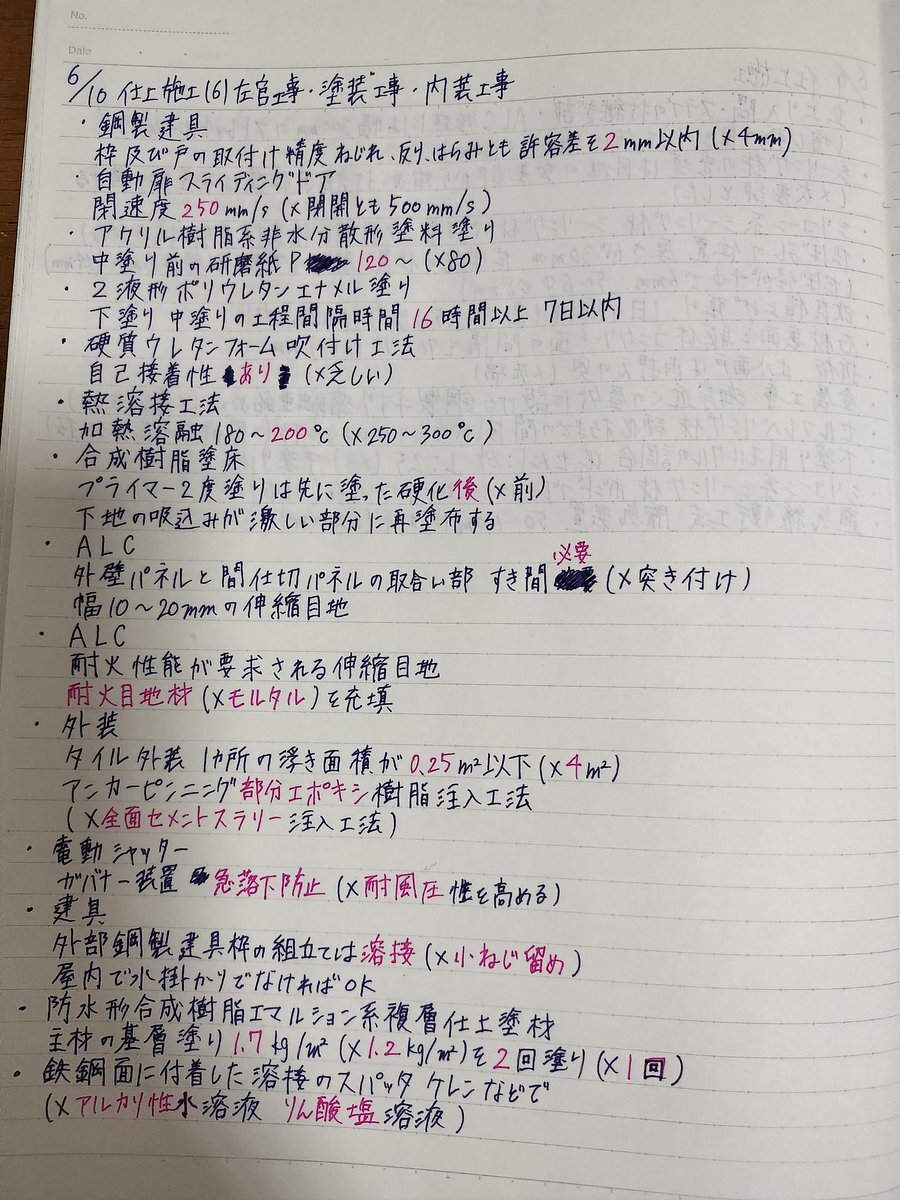 No.
Date
6/10 仕上施工(6)左官工事・塗装工事・内装工事
・鋼製建具
枠及び戸の取付け精度ねじれ、反り、はらみとも許容差を2mm以内(×4mm)
・自動扉スライディングドア
閉速度250mm/s(×閉開とも500mm/s)
・アクリル樹脂系非水分散形塗料塗り
中塗り前の研磨紙P120～(×80)
・2液形ポリウレタンエナメル塗り
下塗り中塗りの工程間隔時間16時間以上7日以内
・硬質ウレタンフォーム吹付け工法
自己接着性あり(×乏しい)
・熱溶接工法
加熱溶融180～200℃(×250～300℃)
・合成樹脂塗床
プライマー2度塗りは先に塗った硬化後(×前)
下地の吸込みが激しい部分に再塗布する
・ALC
外壁パネルと間仕切パネルの取合い部 すき間必要(×突き付け)
幅10～20mmの伸縮目地
・ALC
耐火性能が要求される伸縮目地
耐火目地材(×モルタル)を充填
・外装
タイル外装1ヵ所の浮き面積が0.25m²以下(×4m²)
アンカーピンニング部分エポキシ樹脂注入工法
(×全面セメントスラリー注入工法)
・電動シャッター
ガバナー装置 急落下防止(×耐風圧性を高める)
・建具
外部鋼製建具枠の組立ては溶接(×小ねじ留め)
屋内で水掛かりでなければOK
・防水形合成樹脂エマルション系複層仕上塗材
主材の基層塗り1.7kg/m²(×1.2kg/m²)を2回塗り(×1回)
・鉄鋼面に付着した溶接のスパッタ ケレンなどで
(×アルカリ性水溶液 りん酸塩溶液)